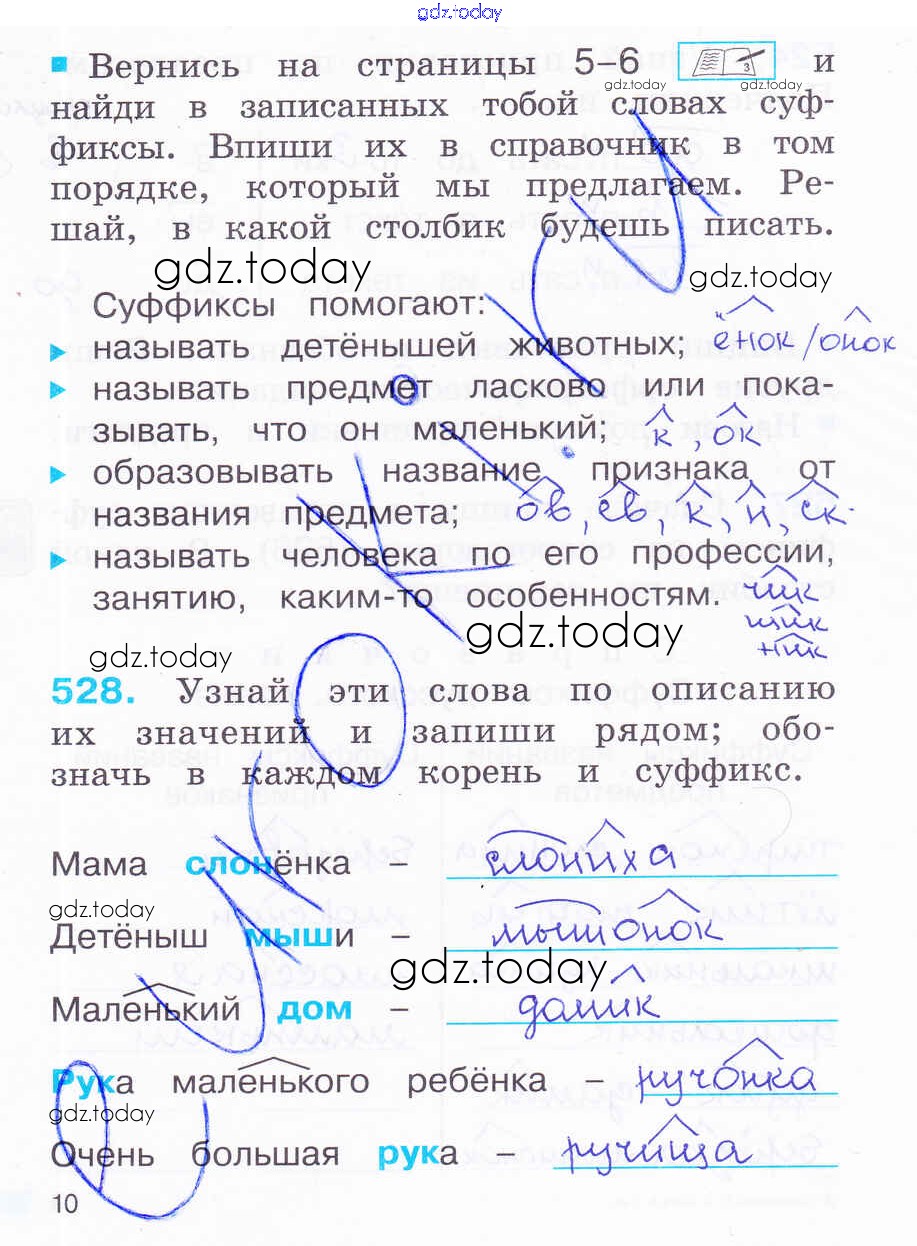 gdz.today
Вернись на страницы 5-6 3 и
gdz.today gdz.today
найди в записанных тобой словах суф-
фиксы. Впиши их в справочник в том
порядке, который мы предлагаем. Ре-
шай, в какой столбик будешь писать.
gdz.today gdz.today
Суффиксы помогают:
называть детёнышей животных; ёнок/онок
называть предмет ласково или пока-
зывать, что он маленький; к, ок
образовывать название признака от
названия предмета; ов, ев, к, н, ск.
называть человека по его профессии,
занятию, каким-то особенностям. чик
щик
gdz.today gdz.today ник
528. Узнай эти слова по описанию
их значений и запиши рядом; обо-
значь в каждом корень и суффикс.
Мама слонёнка – слониха
gdz.today
Детёныш мыши – мышонок
gdz.today
Маленький дом – домик
Рука маленького ребёнка – ручонка
gdz.today
Очень большая рука – ручища
10
gdz.today